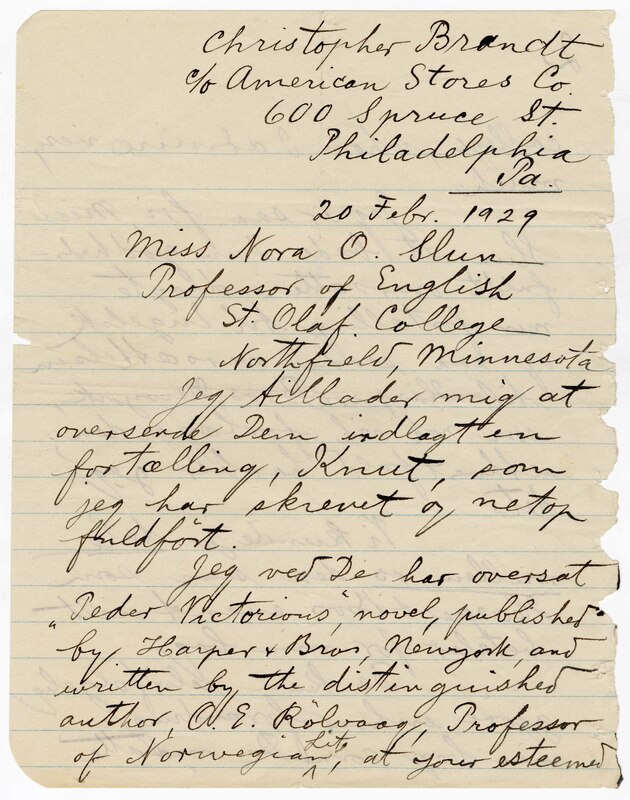 Christopher Brandt
c/o American Stores Co.
600 Spruce St.
Philadelphia
Pa.
20 Febr. 1929
Miss Nora O. Slun
Professor of English
St. Olaf College
Northfield, Minnesota
Jeg tillader mig at
oversende Dem indlagt en
fortælling, Knut, som
jeg har skrevet og netop
fuldfört.
Jeg ved De har oversat
"Peder Victorious", novel, published
by Harper & Bros, Newyork, and
written by the distinguished
author, O. E. Rölvaag, Professor
of Norwegian Lit., at your esteemed